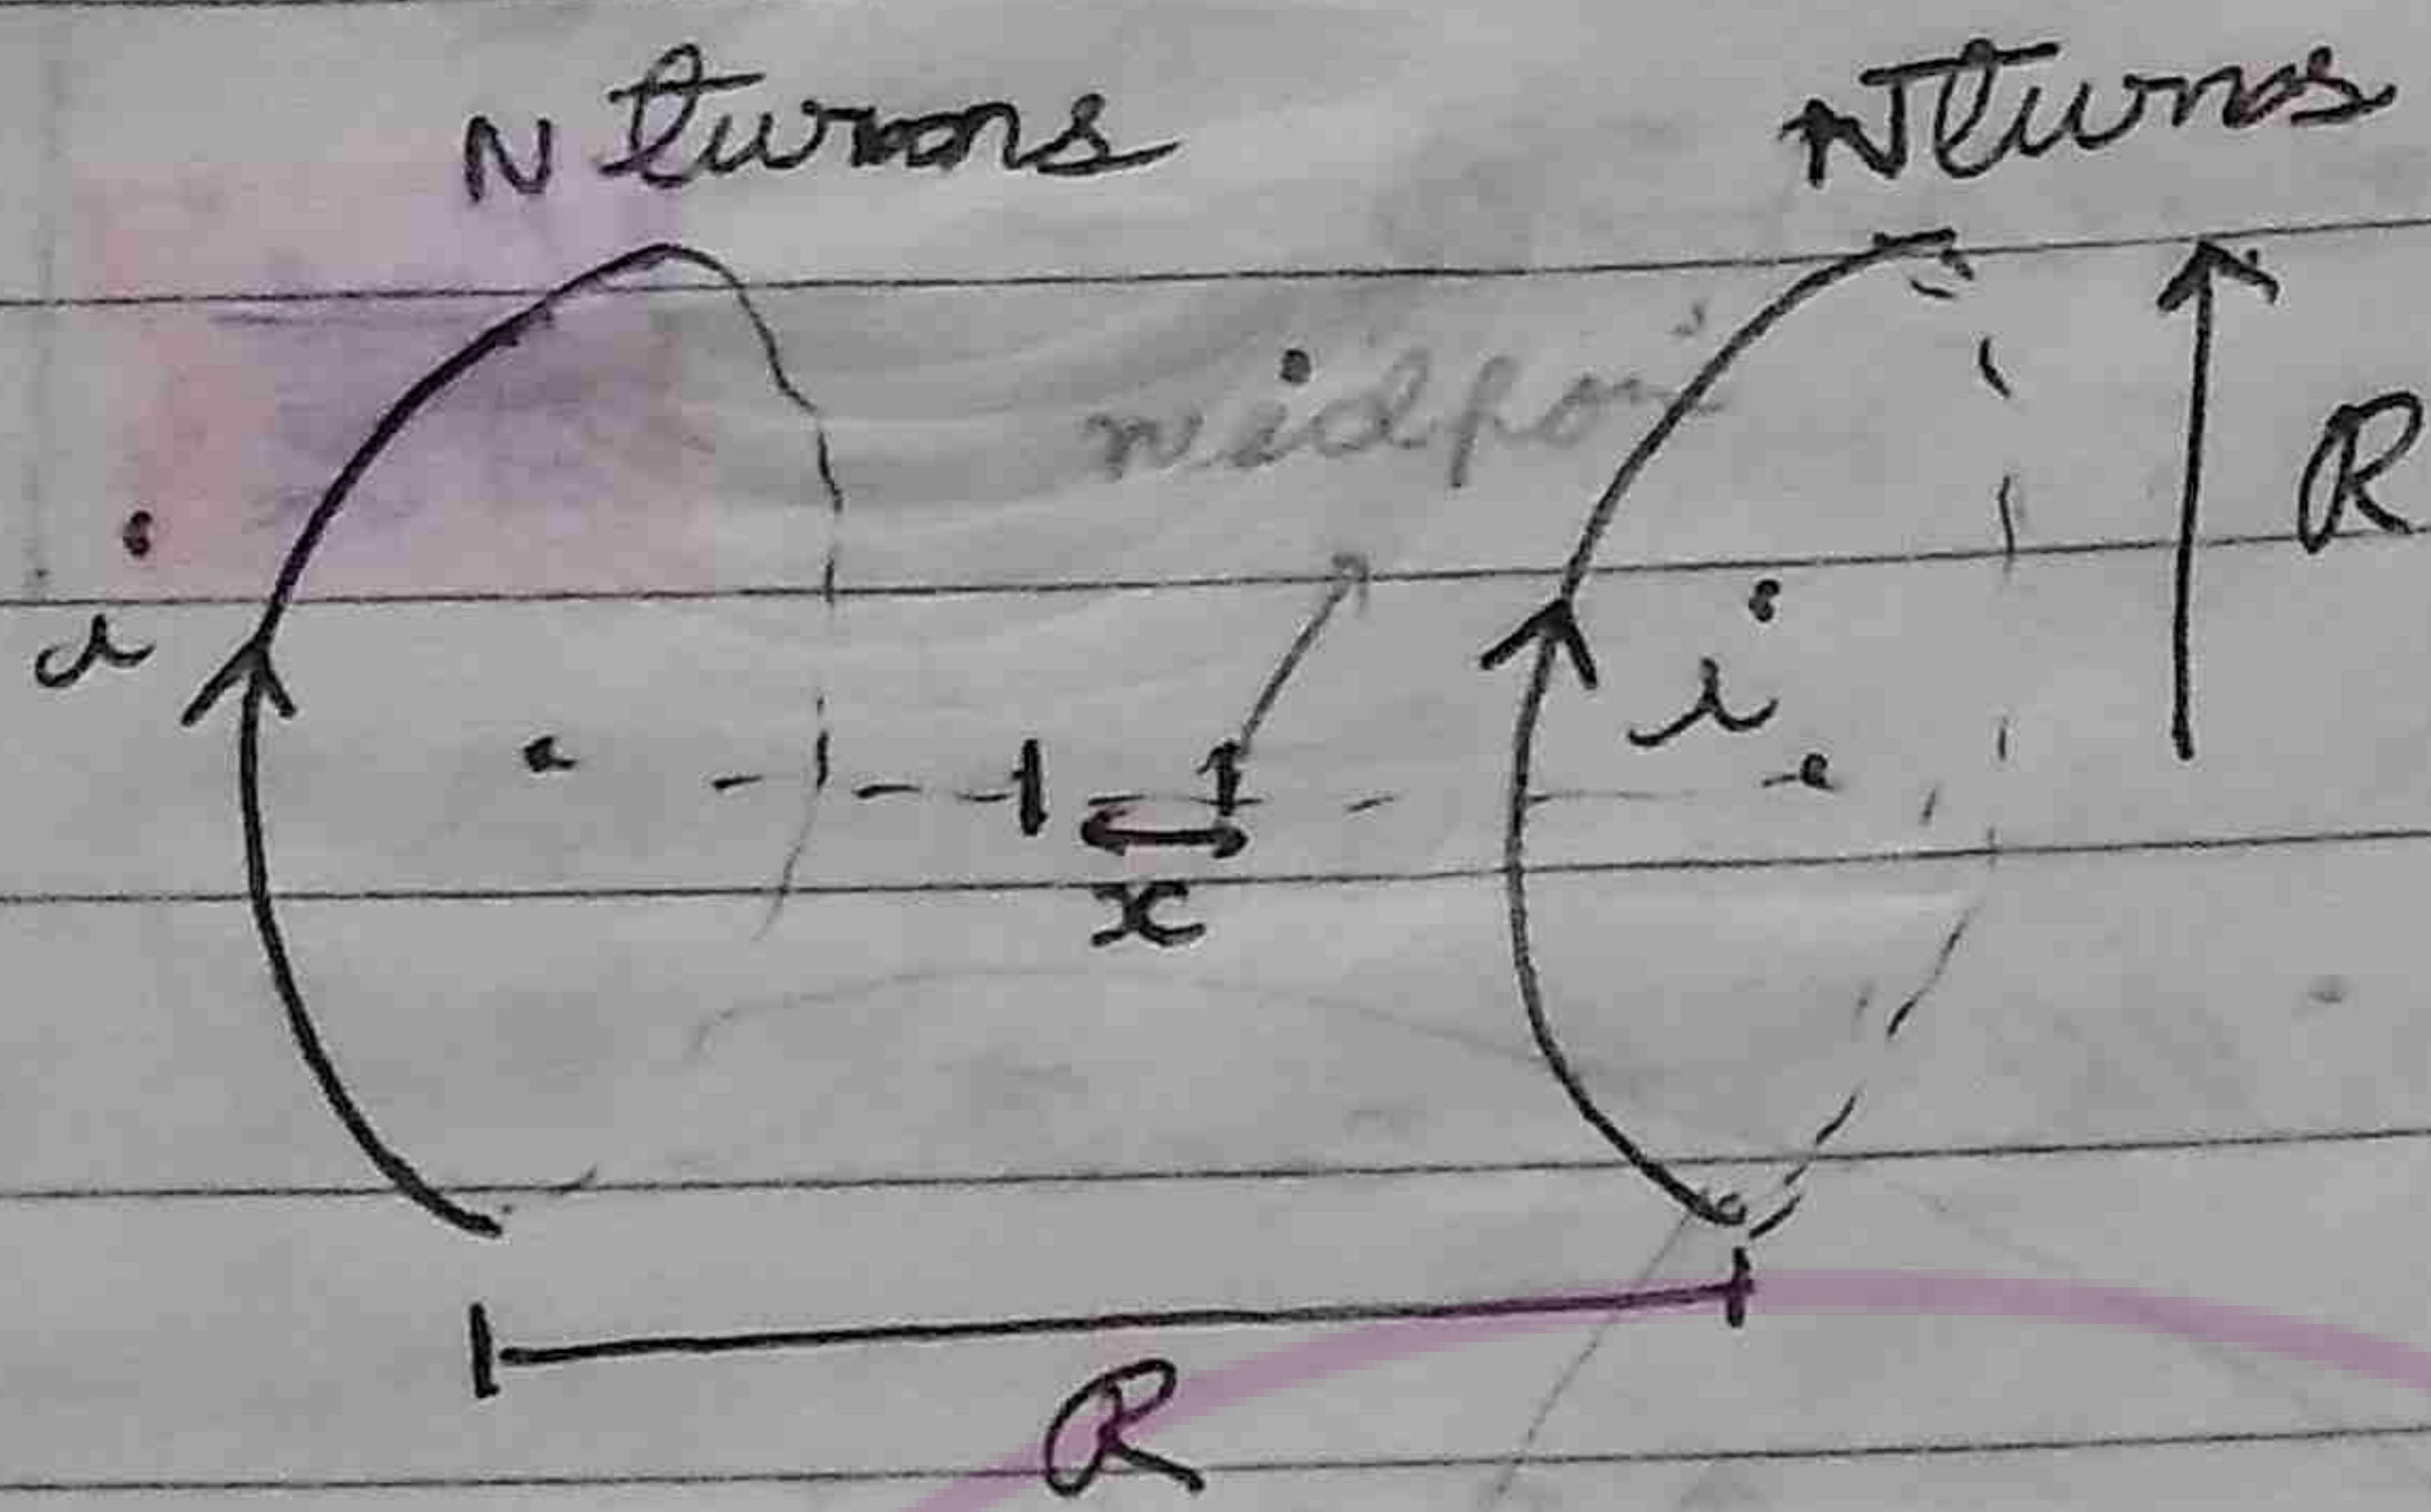 N turns N turns
midpoi
R
i
i
x
R